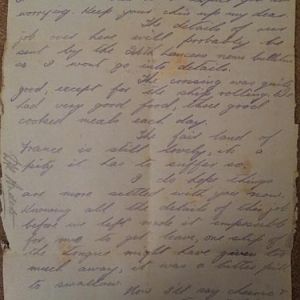 worrying. Keep your chin up my dear
The details of our
job over here will probably be
sent by the news bulletins
so I wont go into details.
The crossing was quite
good, except for the ship rolling. We
had very good food, three good
cooked meals each day.
The fair land of
France is still lovely, its a
pity it has to suffer so.
I do hope things
are more settled with you now.
Knowing all the details of this job
before we left made it impossible
for me to get leave, one slip of
the tongue might have given too
much away, it was a bitter pill
to swallow.
Now I'll say cheerio